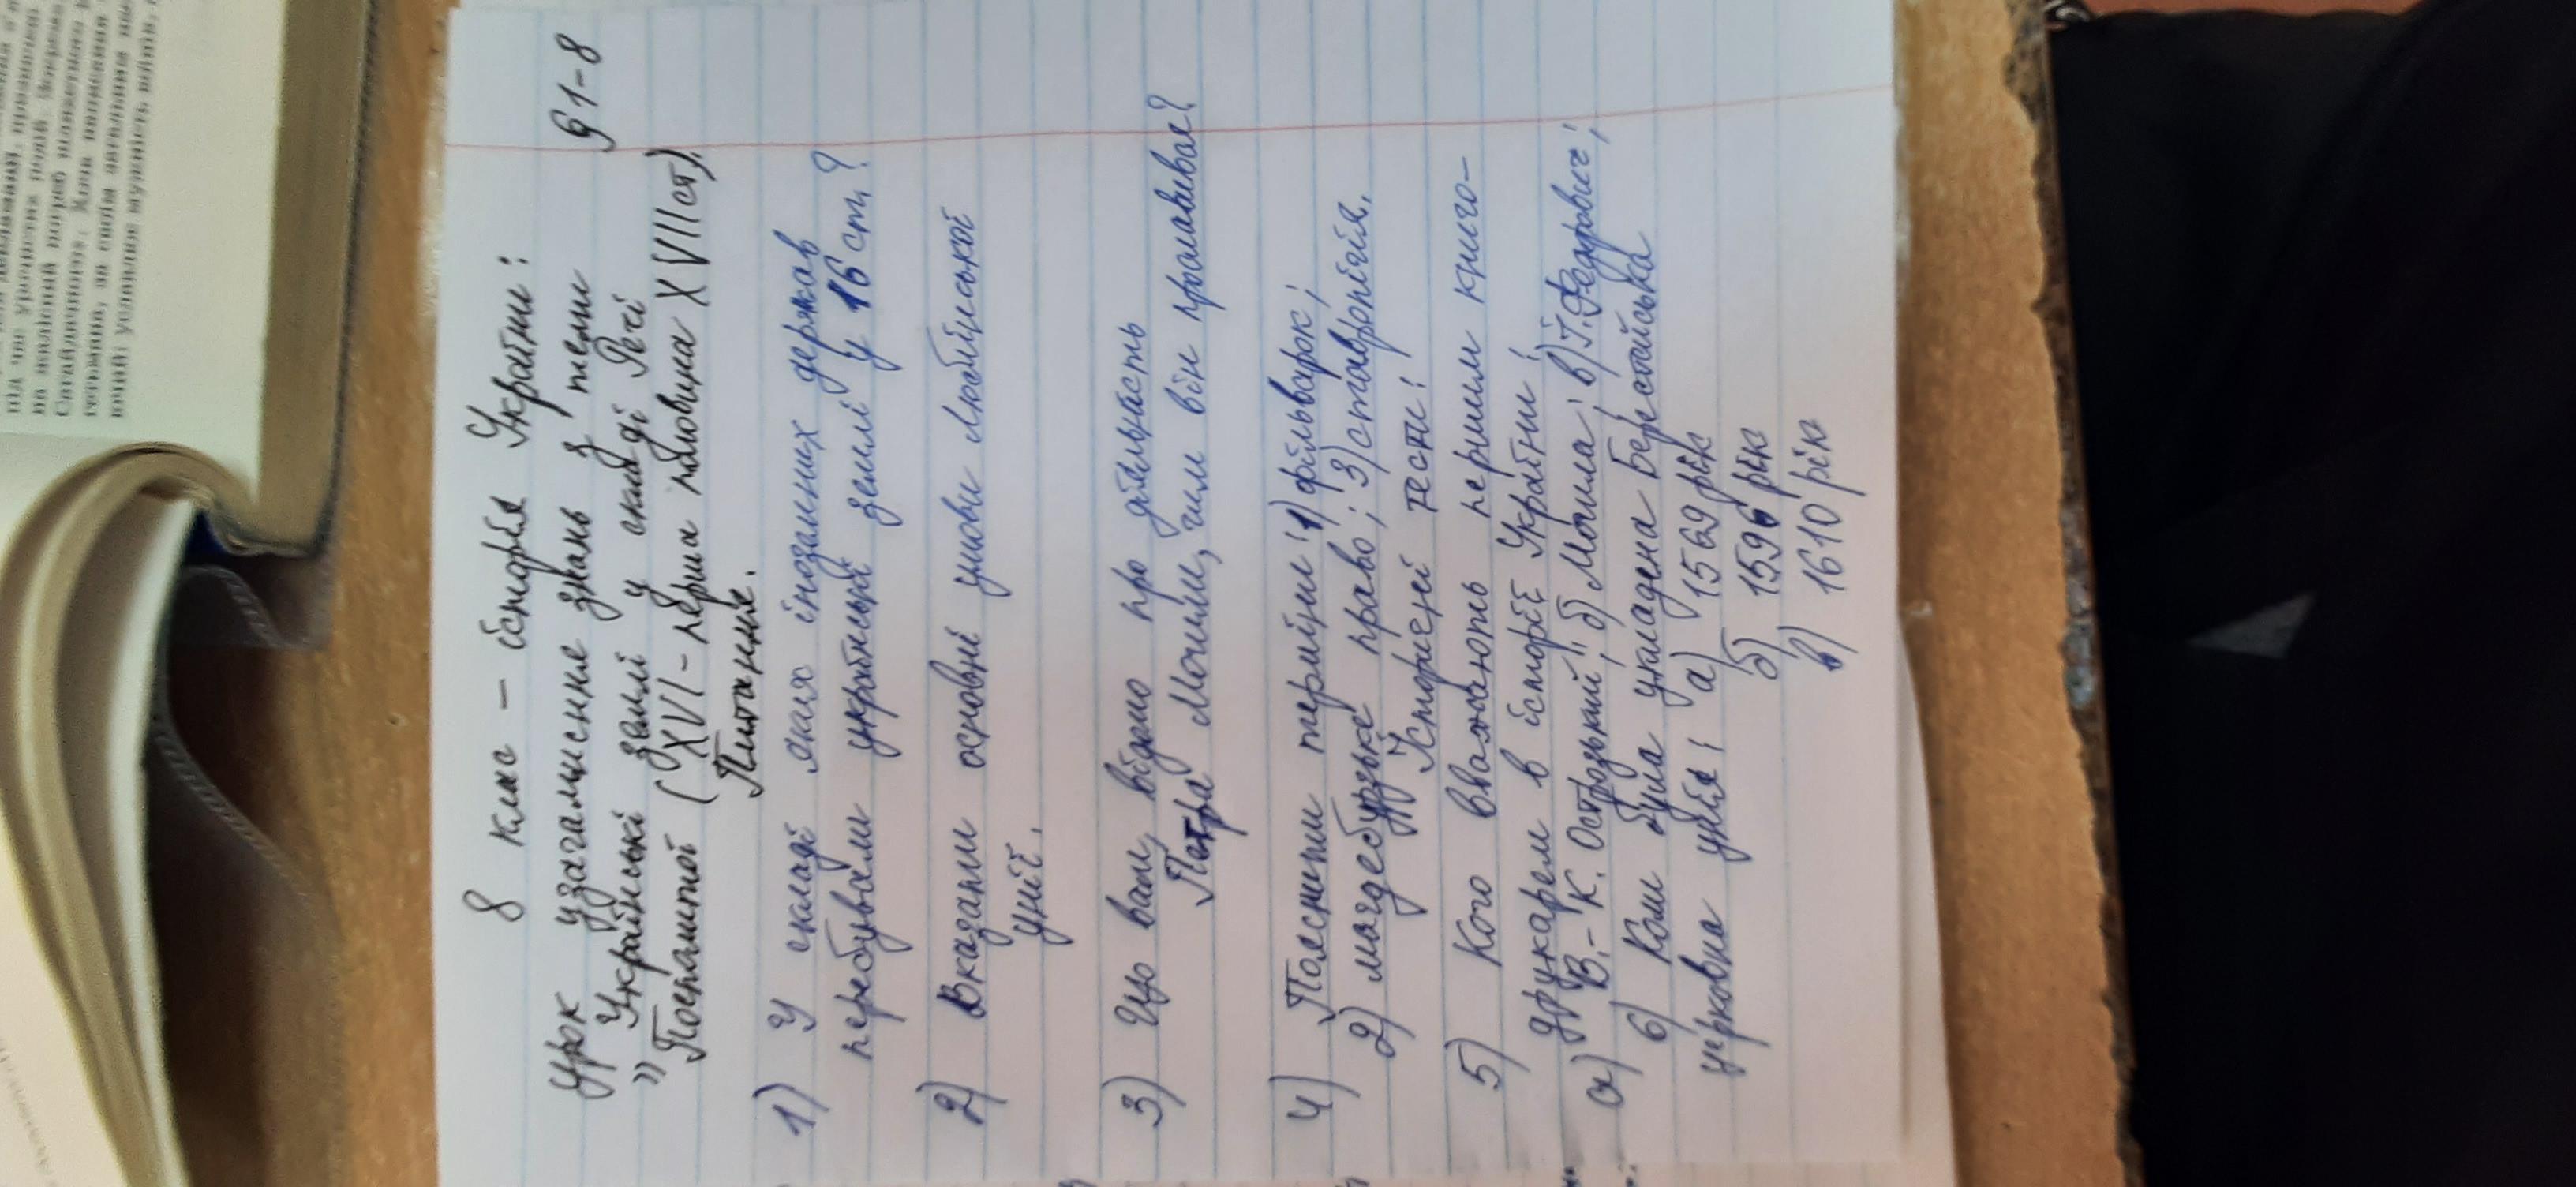 8 клас – історія України:
Урок узагальнення знань з теми §1-8
„Українські землі у складі Речі
Посполитої (XVI – перша половина XVII ст).
Питання.
1) У складі яких іноземних держав
перебували українські землі у 16 ст.?
2) Вказати основні умови Люблінської
унії.
3) Що вам відомо про діяльність
Петра Могили, чим він прославився?
4) Пояснити терміни: 1) фільварок;
2) магдебурзьке право; 3) ставропігія.
Історичні тести:
5) Кого вважають першим книго-
друкарем в історії України:
а) В.-К. Острозький; б) Могила; в) І. Федорович;
6) Коли була укладена Берестейська
церковна унія: а) 1569 рік
б) 1596 рік
в) 1610 рік